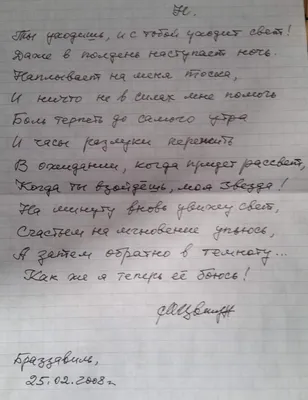 Н.
Ты уходишь, и с тобой уходит свет!
Даже в полдень наступает ночь.
Наплывает на меня тоска,
И ничто не в силах мне помочь
Боль терпеть до самого утра
И часы разлуки пережить
В ожидании, когда придет рассвет,
Когда ты взойдёшь, моя Звезда!
На минуту вновь увижу свет,
Счастьем на мгновение упьюсь,
А затем обратно в темноту...
Как же я теперь её боюсь!
Браззавиль,
25.02.2008г.